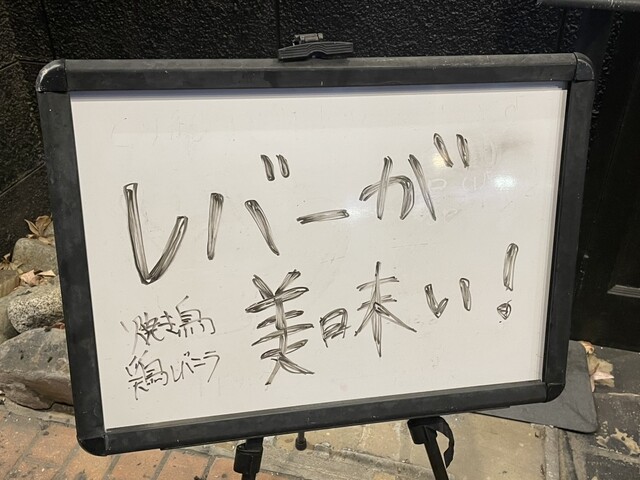 レバーが
美味い!
焼き鳥
鶏レバニラ